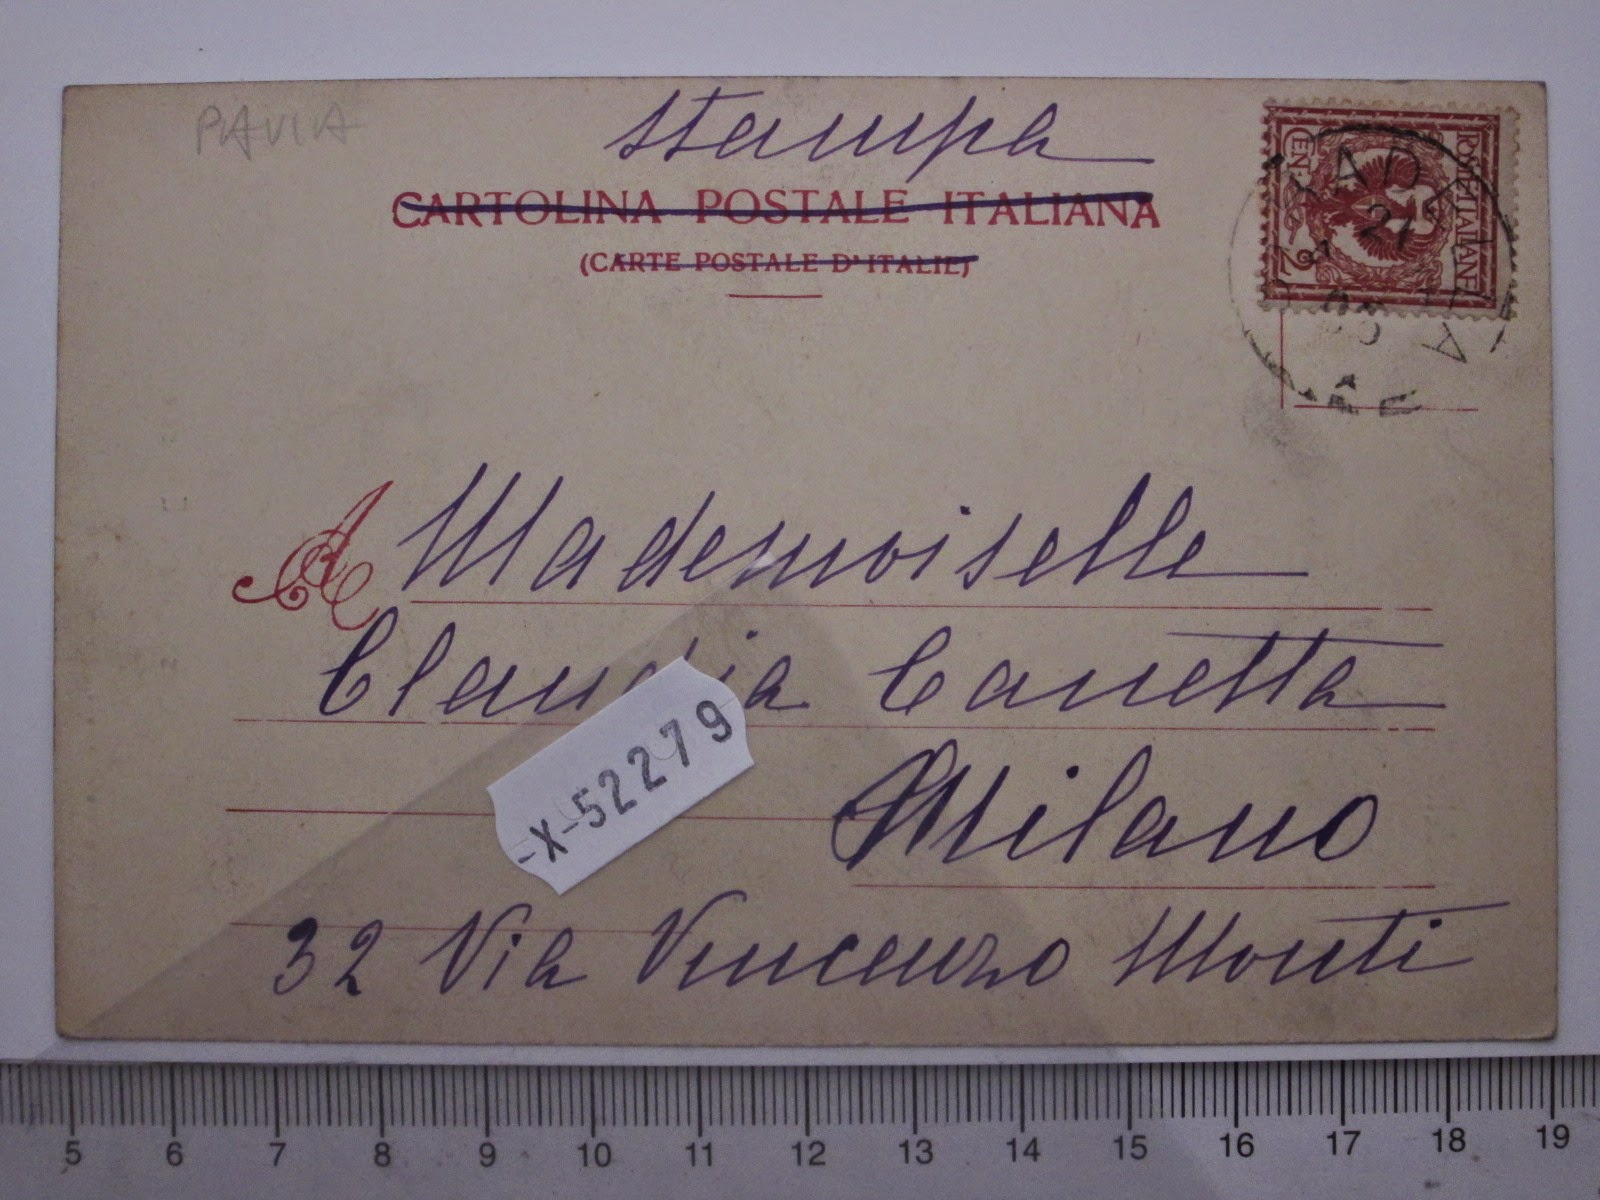 PAVIA
stampa
CARTOLINA POSTALE ITALIANA
(CARTE POSTALE D'ITALIE)
POSTE ITALIANE
CENT. 2
21
A Mademoiselle
Claudia Canetta
Milano
32 Via Vincenzo Monti
-X-52279
5 6 7 8 9 10 11 12 13 14 15 16 17 18 19